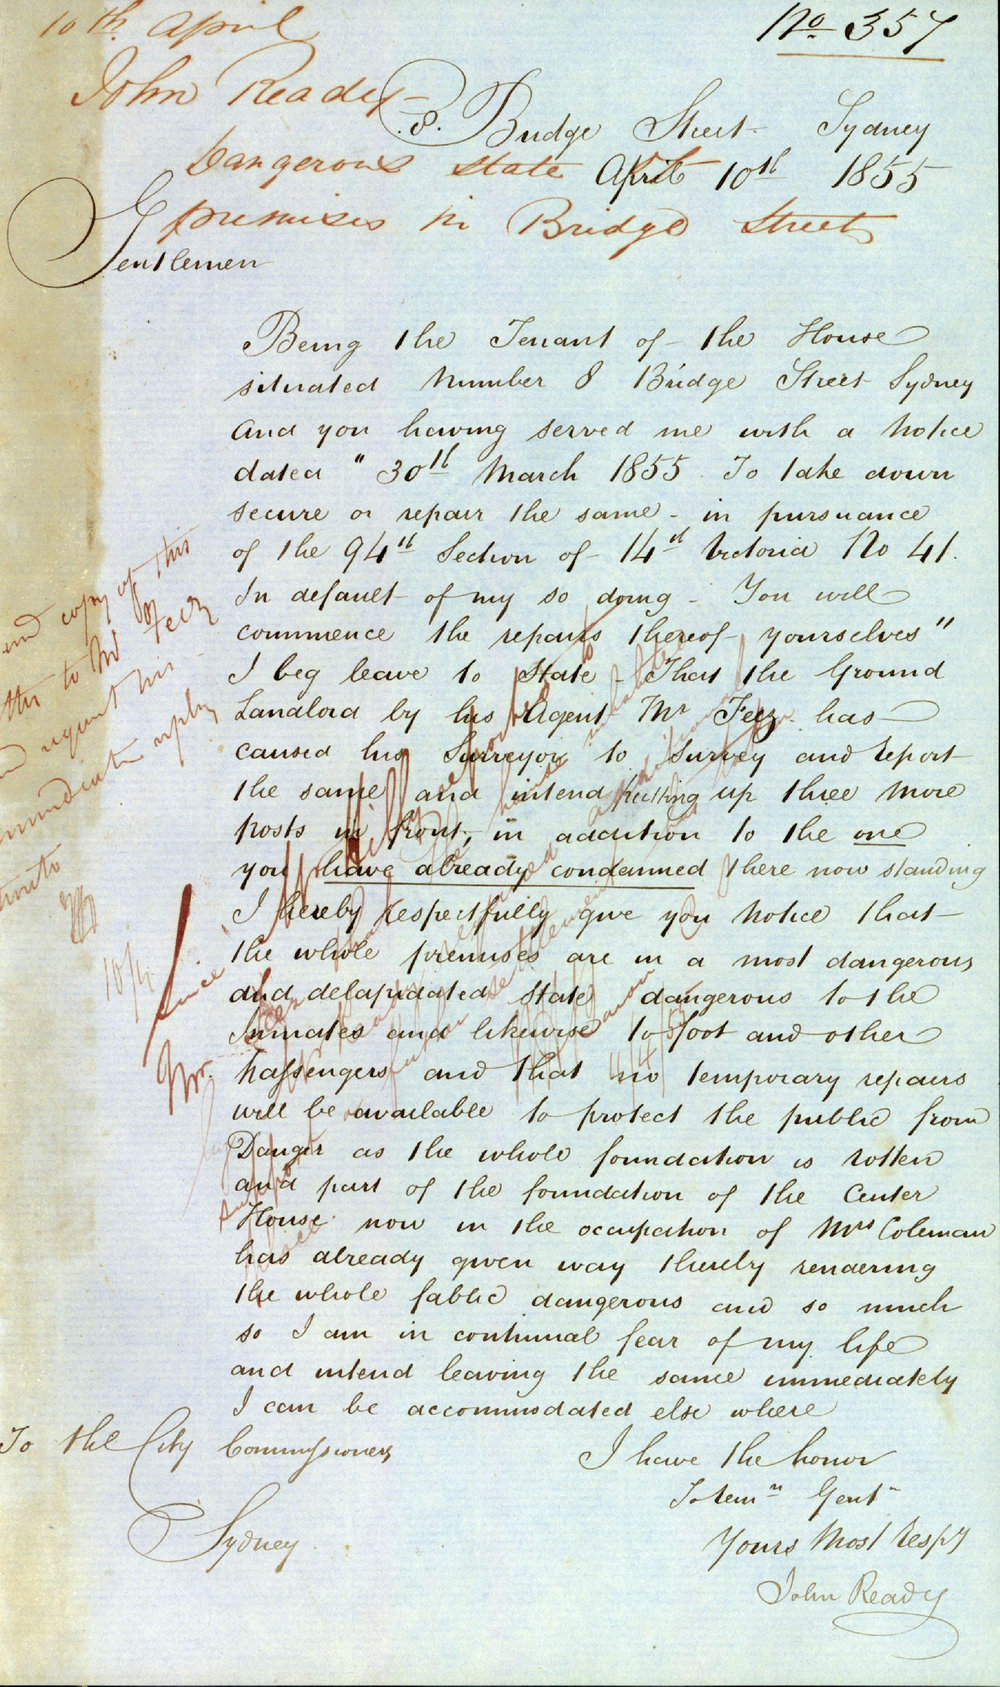 No. 357
10th April
John Ready
Dangerous state of
premises in Bridge Street
8. Bridge Street Sydney
April 10th 1855
Gentlemen
Being the Tenant of the House
situated Number 8 Bridge Street Sydney
and you having served me with a Notice
dated " 30th March 1855. To take down
secure or repair the same - in pursuance
of the 94th Section of 14th Victoria No 41.
In default of my so doing - You will
commence the repairs thereof yourselves"
I beg leave to State - That the Ground
Landlord by his Agent Mr Feez has
caused his Surveyor to Survey and report
the same and intend putting up three more
posts in front, in addition to the one
you have already condemned there now standing
I hereby respectfully give you Notice that
the whole premises are in a most dangerous
and delapidated State dangerous to the
Inmates and likewise to foot and other
passengers and that no temporary repairs
will be available to protect the public from
Danger as the whole foundation is rotten
and part of the foundation of the Center
House now in the occupation of Mrs Coleman
has already given way thereby rendering
the whole fabric dangerous and so much
so I am in continual fear of my life
and intend leaving the same immediately
I can be accommodated else where
I have the honor
To rem n Gent n
Yours Most Respy
John Ready
To the City Commissioners
Sydney
copy of this
to Mr Feez
request his
reply
10/4
since
Mr.